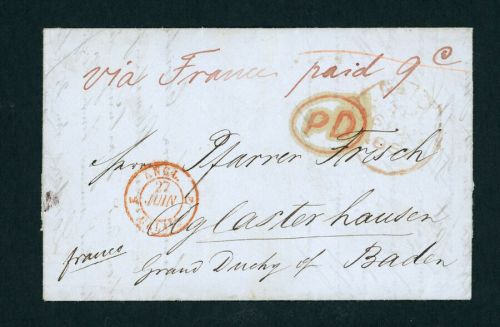 via France paid 9 c
PD
Herrn Pfarrer Frisch
ANGL.
27
JUIN
Aglasterhausen
franco
Grand Duchy of Baden